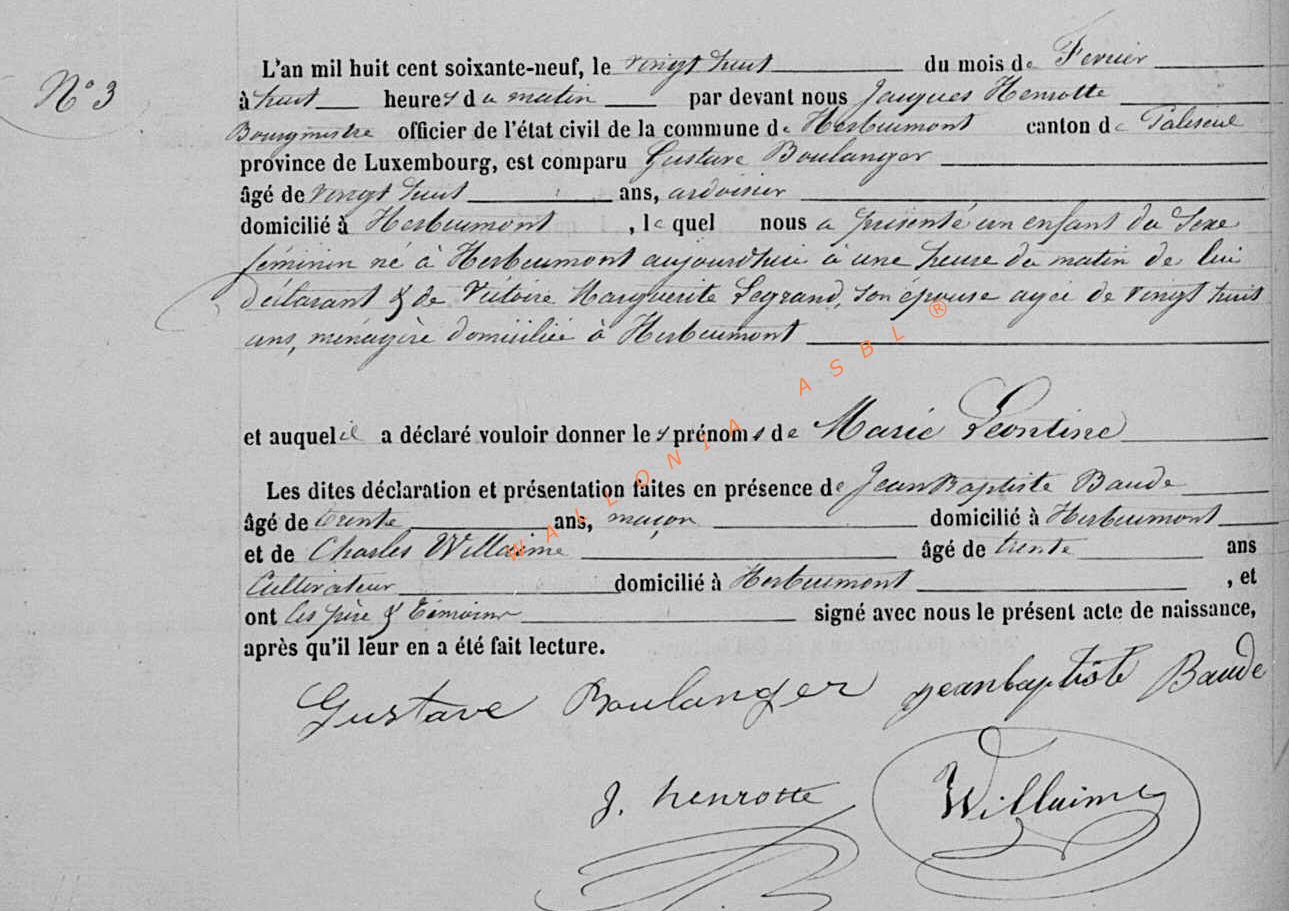 N° 3
L'an mil huit cent soixante-neuf, le vingt huit du mois de Fevrier
à huit heures du matin par devant nous Jacques Henrotte
Bourgmestre officier de l'état civil de la commune de Herbeumont canton de Paliseul
province de Luxembourg, est comparu Gustave Boulanger
âgé de vingt huit ans, ardoisier
domicilié à Herbeumont , le quel nous a présenté un enfant du Sexe
féminin né à Herbeumont aujourdhui à une heure du matin de lui
déclarant & de Victoire Marguerite Legrand, son épouse agée de vingt huit
ans, ménagère domiciliée à Herbeumont
et auquel il a déclaré vouloir donner les prénoms de Marie Léontine
Les dites déclaration et présentation faites en présence de Jean Baptiste Baude
âgé de trente ans, maçon domicilié à Herbeumont
et de Charles Willaime âgé de trente ans
Cultivateur domicilié à Herbeumont , et
ont les père & témoins signé avec nous le présent acte de naissance,
après qu'il leur en a été fait lecture.
Gustave Boulanger jeanbaptiste Baude
J. henrotte Willaime
WALLONIA ASBL ®